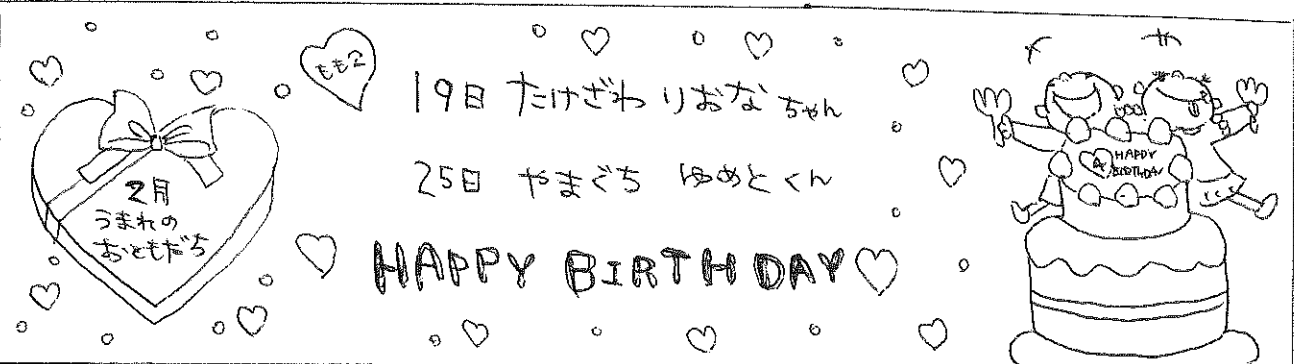 もも2
2月
うまれの
おともだち
19日 たけざわ りおな ちゃん
25日 やまぐち ゆめと くん
HAPPY BIRTHDAY
4 HAPPY
BIRTHDAY